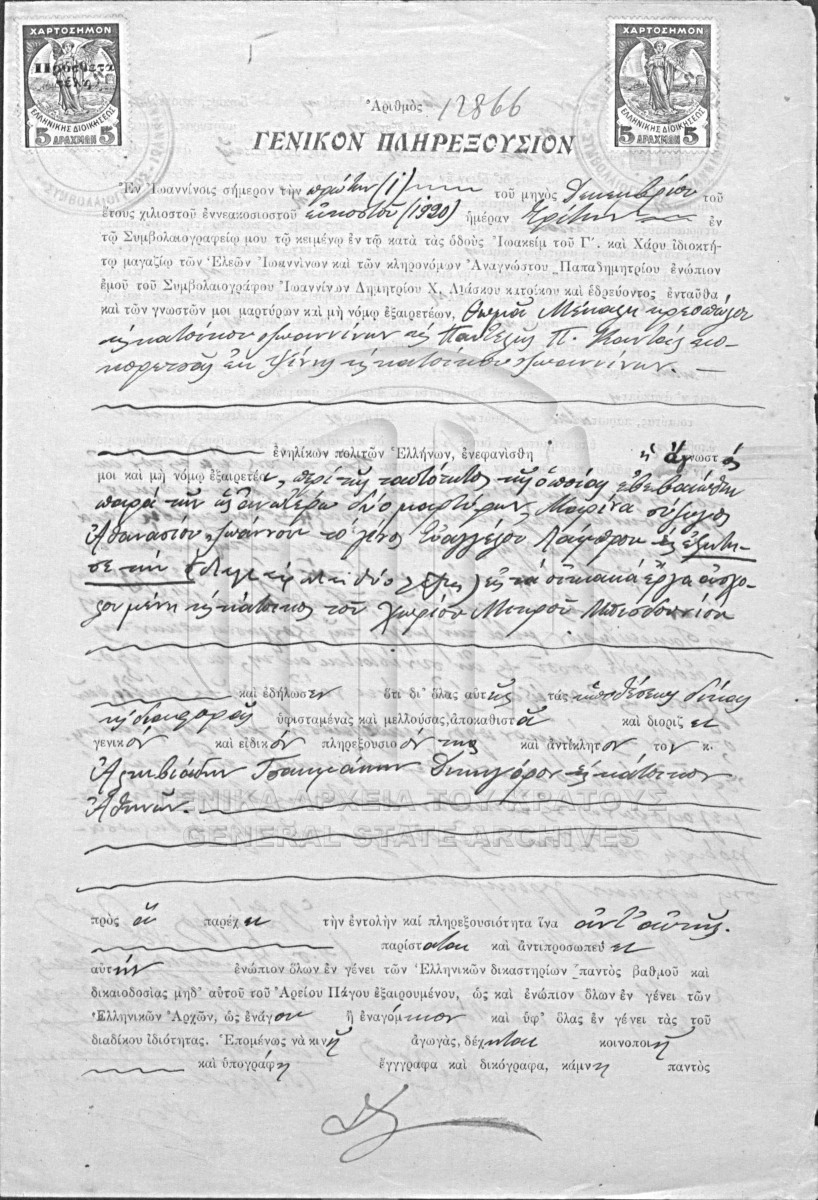 ΧΑΡΤΟΣΗΜΟΝ
Πρόσθετα
τέλη
ΕΛΛΗΝΙΚΗΣ ΔΙΟΙΚΗΣΕΩΣ
5 ΔΡΑΧΜΩΝ 5
ΧΑΡΤΟΣΗΜΟΝ
ΕΛΛΗΝΙΚΗΣ ΔΙΟΙΚΗΣΕΩΣ
5 ΔΡΑΧΜΩΝ 5
Ἀριθμὸς 12866
ΓΕΝΙΚΟΝ ΠΛΗΡΕΞΟΥΣΙΟΝ
Ἐν Ἰωαννίνοις σήμερον τὴν πρώτην (1) τοῦ μηνὸς Δεκεμβρίου τοῦ
ἔτους χιλιοστοῦ ἐννεακοσιοστοῦ εἰκοστοῦ (1920) ἡμέραν Τρίτην ἐν
τῷ Συμβολαιογραφείῳ μου τῷ κειμένῳ ἐν τῷ κατὰ τὰς ὁδοὺς Ἰωακεὶμ τοῦ Γ΄. καὶ Χάρυ ἰδιοκτή-
τῳ μαγαζίῳ τῶν Ἐλεῶν Ἰωαννίνων καὶ τῶν κληρονόμων Ἀναγνώστου Παπαδημητρίου ἐνώπιον
ἐμοῦ τοῦ Συμβολαιογράφου Ἰωαννίνων Δημητρίου Χ. Λιάσκου κατοίκου καὶ ἑδρεύοντος ἐνταῦθα
καὶ τῶν γνωστῶν μοι μαρτύρων καὶ μὴ νόμῳ ἐξαιρετέων, Θωμᾶ κρεοπώλου
κατοίκου Ἰωαννίνων Παντελῆ Π.
κατοίκου Ἰωαννίνων.
ἐνηλίκων πολιτῶν Ἑλλήνων, ἐνεφανίσθη ἡ ἄγνωστός
μοι καὶ μὴ νόμῳ ἐξαιρετέα, περὶ τῆς ταυτότητος τῆς ὁποίας ἐβεβαιώθην
παρὰ τῶν ἀνωτέρω δύο μαρτύρων, Μαρίνα σύζυγος
Ἀθανασίου Ἰωάννου τὸ γένος Εὐαγγέλου Λάμπρου
εἰς τὰ οἰκιακὰ ἔργα ἀσχο-
λουμένη κάτοικος τοῦ χωρίου Μικροῦ
καὶ ἐδήλωσεν ὅτι δι᾽ ὅλας αὐτῆς τάς ὑποθέσεις δίκας
διαφορὰς ὑφισταμένας καὶ μελλούσας, ἀποκαθιστᾷ καὶ διορίζει
γενικὸν καὶ εἰδικὸν πληρεξούσιόν της καὶ ἀντίκλητον τον κ.
Ἀλκιβιάδην Δικηγόρον κάτοικον
Ἀθηνῶν.
ΓΕΝΙΚΑ ΑΡΧΕΙΑ ΤΟΥ ΚΡΑΤΟΥΣ
GENERAL STATE ARCHIVES
πρὸς ὃν παρέχει τὴν ἐντολὴν καί πληρεξουσιότητα ἵνα ἀντ᾽ αὐτῆς.
παρίσταται καὶ ἀντιπροσωπεύει
αὐτήν ἐνώπιον ὅλων ἐν γένει τῶν Ἑλληνικῶν δικαστηρίων παντὸς βαθμοῦ καὶ
δικαιοδοσίας μηδ᾽ αὐτοῦ τοῦ Ἀρείου Πάγου ἐξαιρουμένου, ὡς καὶ ἐνώπιον ὅλων ἐν γένει τῶν
Ἑλληνικῶν Ἀρχῶν, ὡς ἐνάγον ἢ ἐναγόμενον καὶ ὑφ᾽ ὅλας ἐν γένει τὰς τοῦ
διαδίκου ἰδιότητας. Ἑπομένως νὰ κινῇ ἀγωγὰς, δέχηται κοινοποιῇ
καὶ ὑπογράφῃ ἔγγγραφα καὶ δικόγραφα, κάμνῃ παντὸς